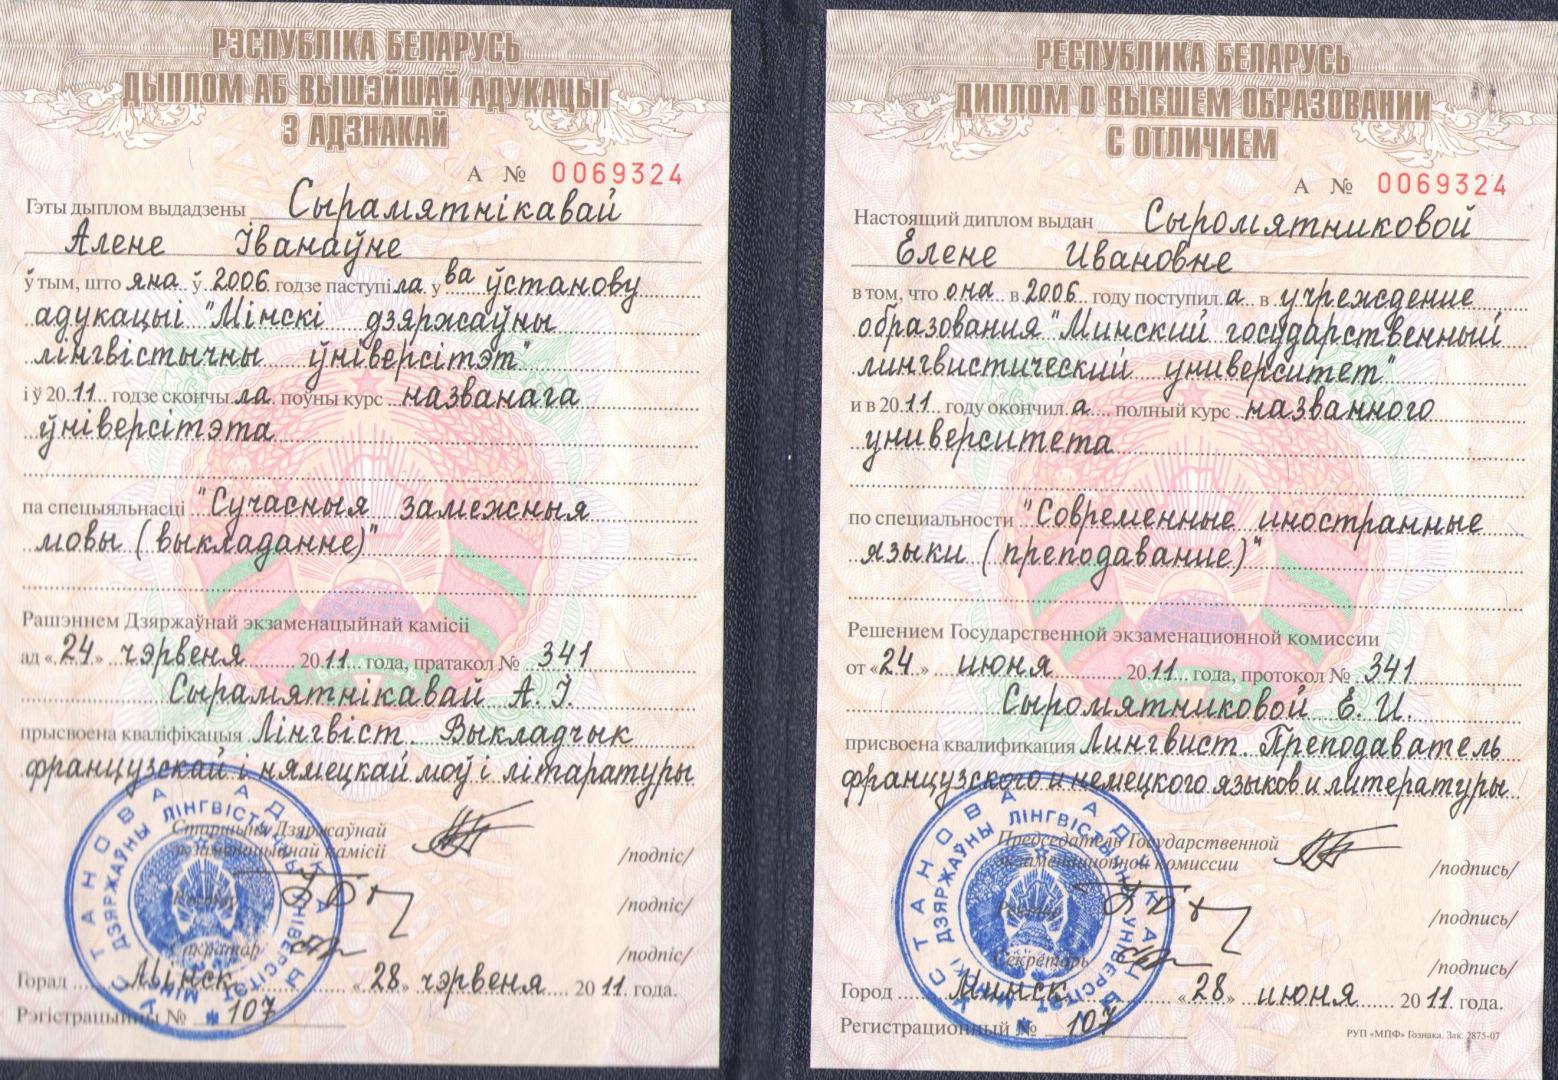 РЭСПУБЛІКА БЕЛАРУСЬ
ДЫПЛОМ АБ ВЫШЭЙШАЙ АДУКАЦЫІ
З АДЗНАКАЙ
А № 0069324
Гэты дыплом выдадзены Сырамятнікавай
Алене Іванаўне
ў тым, што яна ў 2006 годзе паступіла у ва ўстанову
адукацыі "Мінскі дзяржаўны
лінгвістычны ўніверсітэт"
і ў 2011 годзе скончыла поўны курс названага
ўніверсітэта
па спецыяльнасці "Сучасныя замежныя
мовы (выкладанне)"
Рашэннем Дзяржаўнай экзаменацыйнай камісіі
ад «24» чэрвеня 2011 года, пратакол № 341
Сырамятнікавай А. І.
прысвоена кваліфікацыя Лінгвіст. Выкладчык
французскай і нямецкай моў і літаратуры
Старшыня Дзяржаўнай
экзаменацыйнай камісіі
/подпіс/
Рэктар
/подпіс/
Сакратар
/подпіс/
Горад Мінск «28» чэрвеня 2011 года.
Рэгістрацыйны № 107
УСТАНОВА АДУКАЦЫІ
МІНСКІ ДЗЯРЖАЎНЫ ЛІНГВІСТЫЧНЫ УНІВЕРСІТЭТ
РЕСПУБЛИКА БЕЛАРУСЬ
ДИПЛОМ О ВЫСШЕМ ОБРАЗОВАНИИ
С ОТЛИЧИЕМ
А № 0069324
Настоящий диплом выдан Сыромятниковой
Елене Ивановне
в том, что она в 2006 году поступила в учреждение
образования "Минский государственный
лингвистический университет"
и в 2011 году окончила полный курс названного
университета
по специальности "Современные иностранные
языки (преподавание)"
Решением Государственной экзаменационной комиссии
от «24» июня 2011 года, протокол № 341
Сыромятниковой Е. И.
присвоена квалификация Лингвист. Преподаватель
французского и немецкого языков и литературы
Председатель Государственной
экзаменационной комиссии
/подпись/
Ректор
/подпись/
Секретарь
/подпись/
Город Минск «28» июня 2011 года.
Регистрационный № 107
РУП «МПФ» Гознака. Зак. 2875-07
УСТАНОВА АДУКАЦЫІ
МІНСКІ ДЗЯРЖАЎНЫ ЛІНГВІСТЫЧНЫ УНІВЕРСІТЭТ